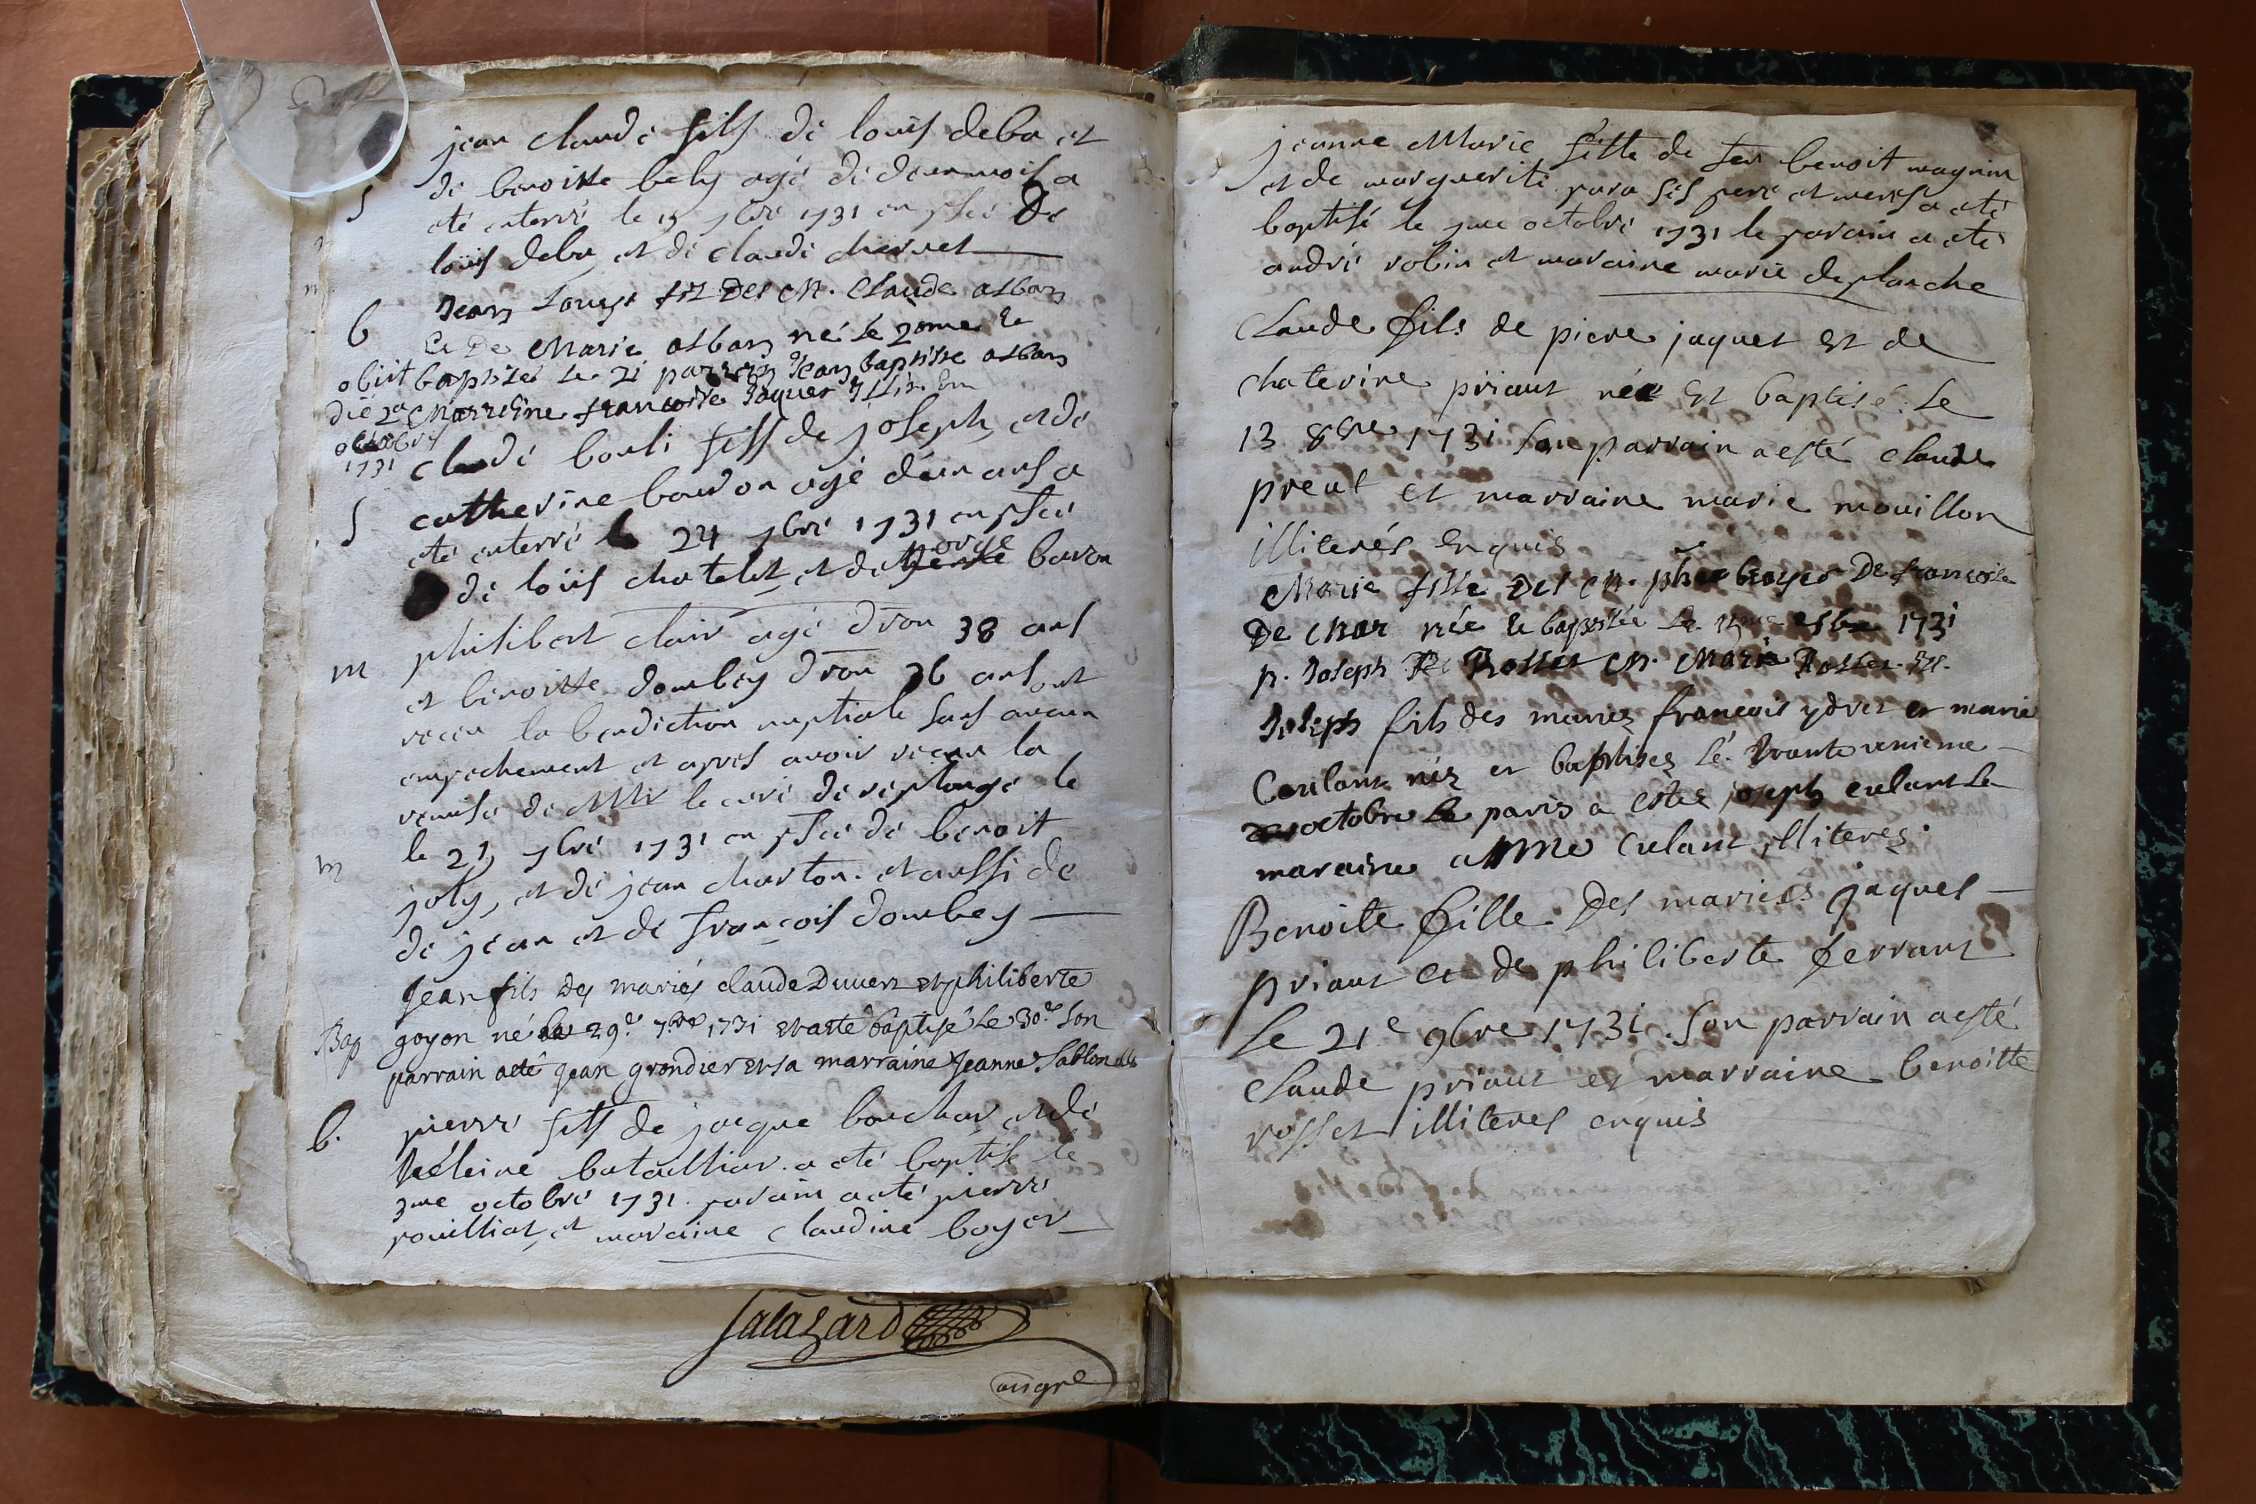 jean claude fils de louis debu et
S
de benoitte bely agé de deux mois a
eté enterré le 7bre 1731 en psce De
louis debu et de claude chervet
Jean Louys fil Des M. Claude alban
b
Et De Marie alban né le 20me Et
obiit baptisé le 21 parrein Jean baptiste alban
die 2a Marreine francoise Jaquet Illit. Enr
octobris
1731
claude bouli fils de joseph, et de
S
catherine bouron agé d'un ans a
eté enterré le 24 7bre 1731 en psce
de louis chatelet, et de bouron
m
philibert clair agé d'ron 38 ans
et benoitte dombey d'ron 36 ans ont
receu la benediction nuptiale sans aucun
empechement et apres avoir receu la
remise de Mr le curé de replonge le
m
le 21 7bre 1731 en psce de benoit
joly, et de jean charton. et aussi de
de jean et de françois dombey
Jean fils des mariés claude Duvert et philiberte
Bap
goyon né le 29e 7bre 1731 et a eté baptisé le 30e son
parrain a eté jean grondier et sa marraine Jeanne Sablon
b.
pierre fils de jacque bouchar, et de
héleine bataillar a eté baptisé le
3me octobre 1731. parain a eté pierre
rouilliat, et maraine claudine boyer
Salazard
jeanne Marie fille de feu benoit magnin
et de marguerite para ses pere et meres a eté
baptisé le octobre 1731 le parain a eté
andré robin et maraine marie deplanche
Claude fils de piere jaquet et de
chaterine priaut né et baptisé le
13 8bre 1731 son parrain a esté claude
preat et marraine marie mouillon
illiterés enquis
Marie fille Des M. De francoise
De Mar née Et baptisée Le 1731
p. Joseph Rosset M. Marie Rosset
Joseph fils des mariez francois ydret et marie
Coulant néz et baptisez lé trante uenieme
octobre le parin a estez joseph culant la
maraine anne Culant illiteres
Benoite fille des mariés jaques
priaut et de philiberte ferrant
Le 21e 9bre 1731. son parrain a esté
claude priaut et marraine benoitte
rosset illiteres enquis